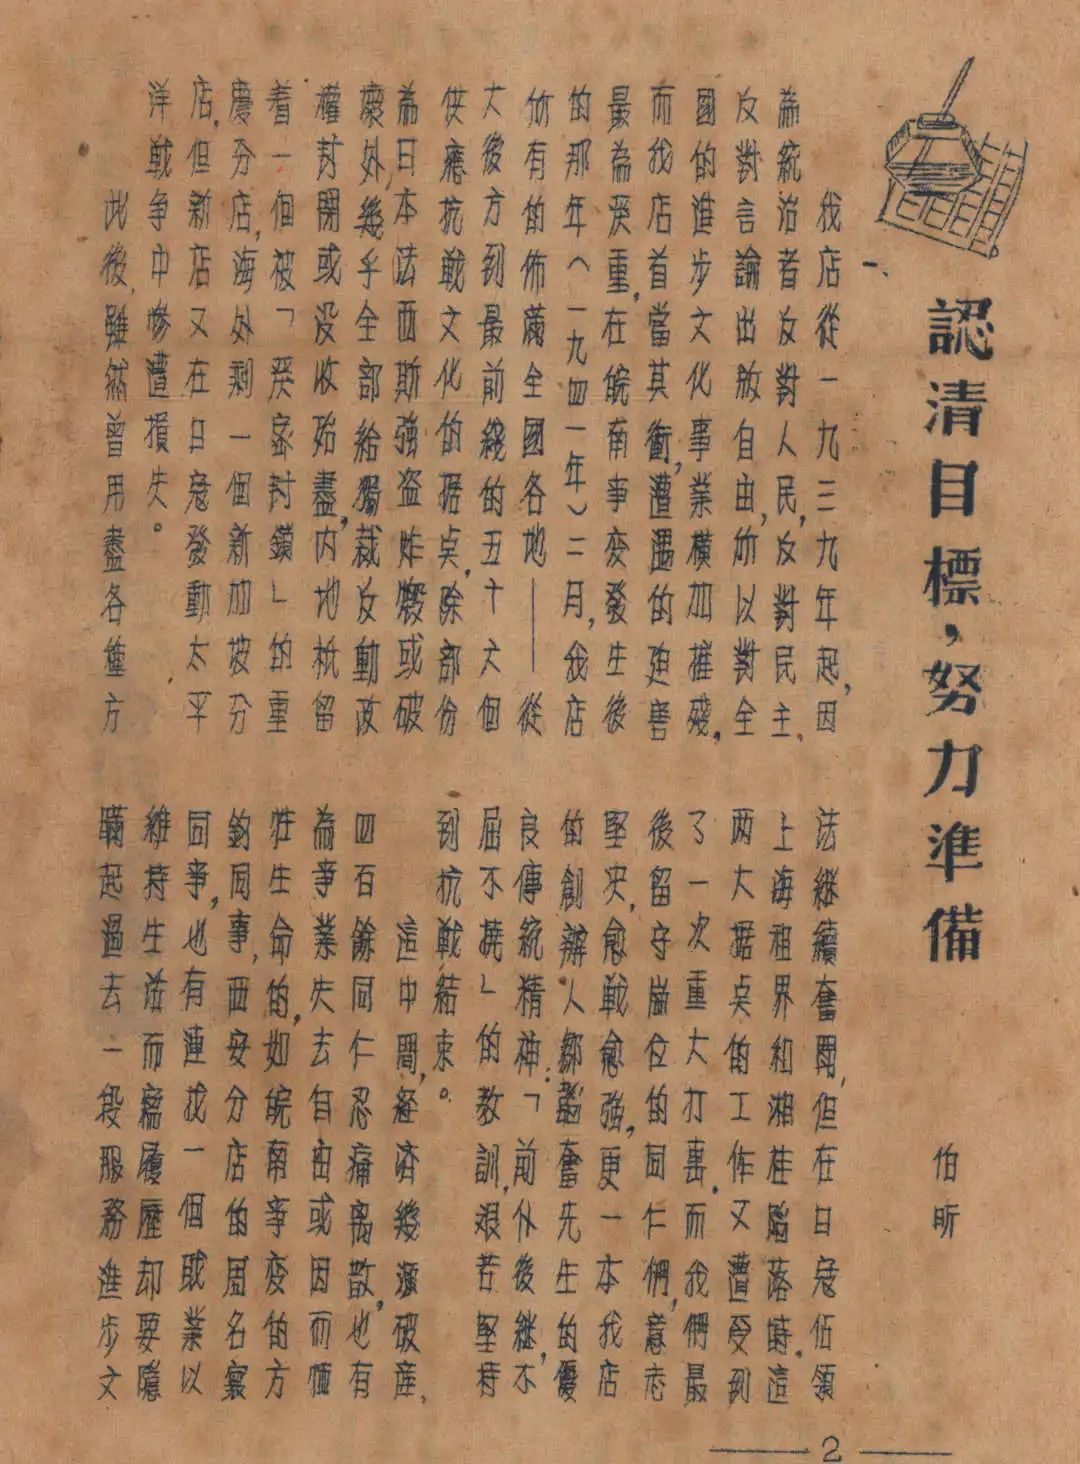 認清目標，努力準備
伯昕
一、
我店從一九三九年起，因
為統治者反對人民，反對民主、
反對言論出版自由，所以對全
國的進步文化事業橫加摧殘，
而我店首當其衝，遭遇的迫害
最為嚴重，在皖南事变發生後
的那年（一九四一年）二月，我店
所有的佈滿全國各地——從
大後方到最前綫的五十六個
供應抗戰文化的据点，除部份
為日本法西斯強盗炸燬或破
壞外，幾乎全部給獨裁反動政
權封閉或没收殆盡，内地祇留
着一個被「严密封鎖」的重
慶分店，海外剩一個新加坡分
店，但新店又在日寇發動太平
洋戰争中慘遭損失。
此後，雖然曾用盡各種方
法継續奮鬥，但在日寇佔領
上海租界和湘桂陷落時，這
两大据点的工作又遭受到
了一次重大打擊，而我們最
後留守崗位的同仁們，意志
堅决，愈戰愈強，更一本我店
的創辦人鄒韜奮先生的優
良傳統精神：「前仆後継，不
屈不撓」的教訓，艰苦堅持
到抗戰結束。
這中間，経済幾瀕破産，
四百餘同仁忍痛离散，也有
為事業失去自由或因而犧
牲生命的，如皖南事变的方
鈞同事，西安分店的周名寰
同事，也有連找一個职業以
維持生活而寫履歷却要隱
瞞起過去一段服務進步文
2